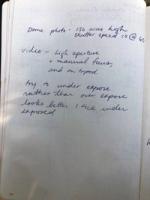 Dome photo - ISO was high
shutter speed
video - high aperture
+ manual focus,
and on tripod
try to under expose
rather than over expose
looks better
exposed